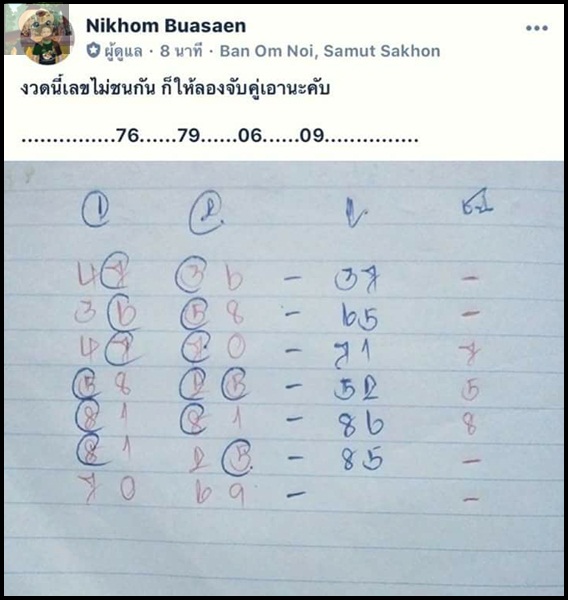 Nikhom Buasaen
ผู้ดูแล · 8 นาที · Ban Om Noi, Samut Sakhon
งวดนี้เลขไม่ชนกัน ก็ให้ลองจับคู่เอานะคับ
...............76......79......06......09...............
1 2 ล ชน
47 36 - 37 -
36 58 - 65 -
47 70 - 71 7
58 25 - 52 5
81 81 - 86 8
81 25 - 85 -
70 69 - -